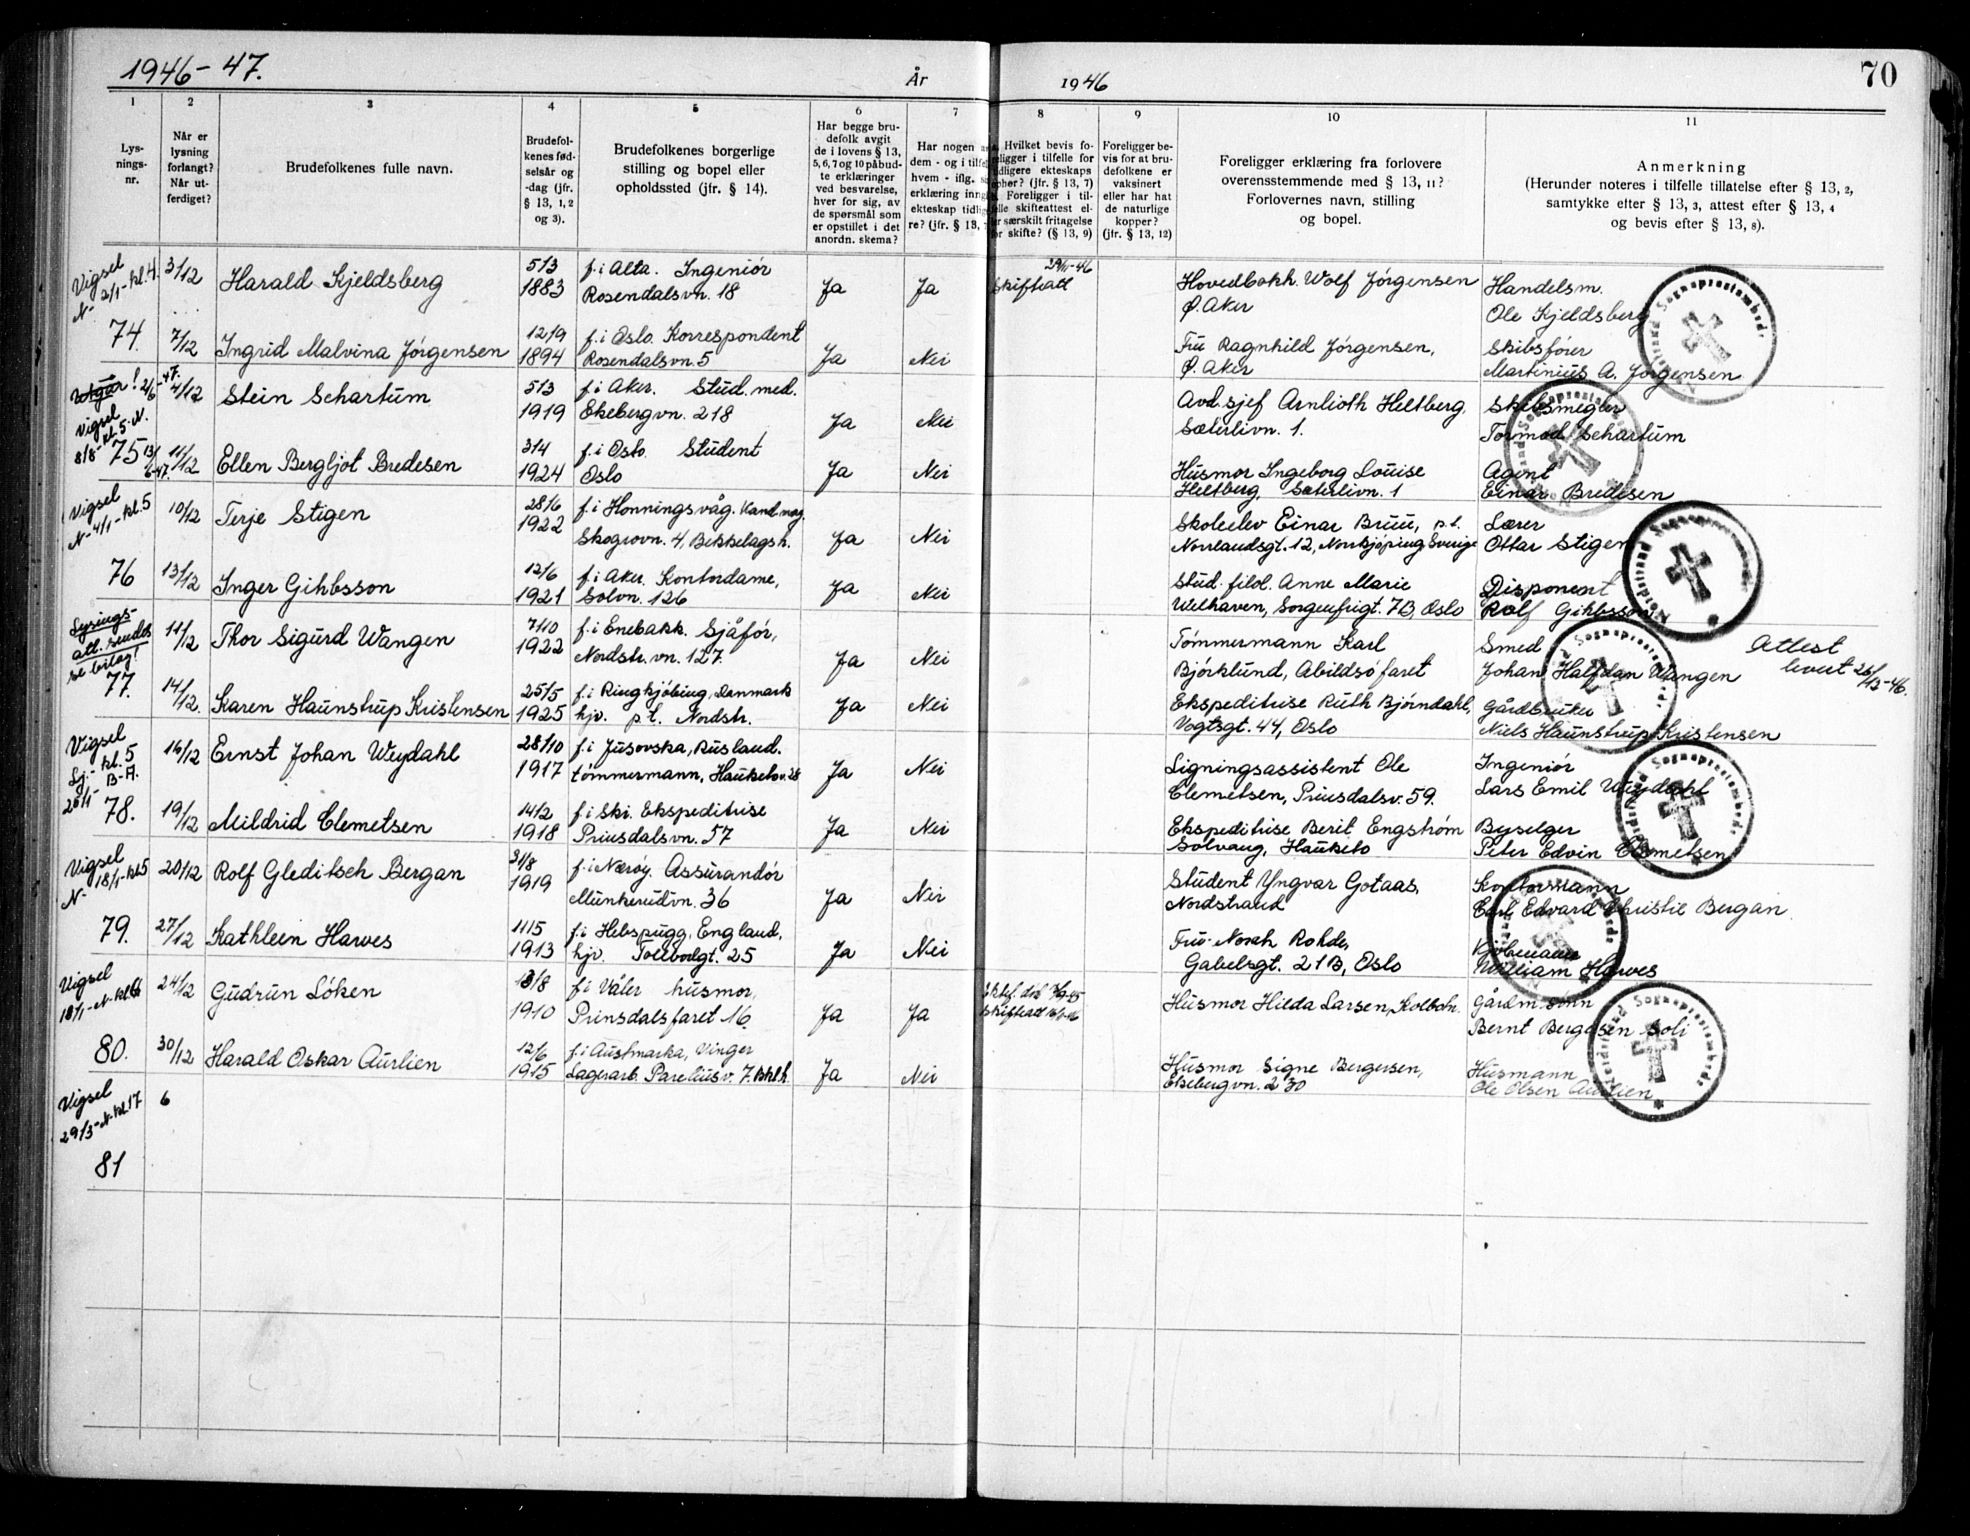 1946-47.
År
1946
70
1
Lys-
nings-
nr.
2
Når er
lysning
forlangt?
Når ut-
ferdiget?
3
Brudefolkenes fulle navn.
4
Brudefol-
kenes fød-
selsår og
-dag (jfr.
§ 13, 1, 2
og 3).
5
Brudefolkenes borgerlige
stilling og bopel eller
opholdssted (jfr. § 14).
6
Har begge bru-
defolk avgit
de i lovens § 13,
5, 6, 7 og 10 påbud-
te erklæringer
ved besvarelse,
hver for sig, av
de spørsmål som
er opstillet i det
anordn. skema?
7
Har nogen
dem - og i tilfel
hvem - iflg.
erklæring inng
ekteskap tidlig
re? (jfr. § 13,
8
Hvilket bevis fo-
religger i tilfelle for
tidligere ekteskaps
ophør? (jfr. § 13, 7)
Foreligger i til-
felle skifteattest el-
ler særskilt fritagelse
for skifte? (§ 13, 9)
9
Foreligger be-
vis for at bru-
defolkene er
vaksinert
eller har hat
de naturlige
kopper?
(jfr. § 13, 12)
10
Foreligger erklæring fra forlovere
overensstemmende med § 13, 11?
Forlovernes navn, stilling
og bopel.
11
Anmerkning
(Herunder noteres i tilfelle tillatelse efter § 13, 2,
samtykke efter § 13, 3, attest efter § 13, 4
og bevis efter § 13, 8).
Vigsel
2/1-kl.4.
N-
74.
3/12
Harald Kjeldsberg
5/3
1883
f. i Alta. Ingeniør
Rosendalsvn. 18
Ja
Ja
Skifteatt
Hovedbokh. Wolf Jørgensen
Ø. Aker
Handelsm.
Ole Kjeldsberg
7/12
Ingrid Malvina Jørgensen
12/9
1894
f. i Oslo. Korrespondent
Rosendalsvn. 5
Ja
Nei
Fru Ragnhild Jørgensen,
Ø. Aker
Skibsfører
Martinius A. Jørgensen
Utgår! 2/6-47.
Vigsel
8/8-kl.5-N.
75
4/12
Stein Schartum
5/3
1919
f. i Aker. Stud. med.
Ekebergvn. 218
Ja
Nei
Avd. sjef Arnlioth Heltberg.
Sæterlivn. 1.
Skibsmegler
Tormod Schartum
11/12
Ellen Bergljot Bredesen
3/4
1924
f. i Oslo. Student
Oslo
Ja
Nei
Husmor Ingeborg Louise
Heltberg, Sæterlivn. 1
Agent
Einar Bredesen
Vigsel
N-4/1-kl.5
76
10/12
Terje Stigen
28/6
1922
f. i Honningsvåg. Kand. mag.
Skogrovn. 4, Bekkelagsh.
Ja
Nei
Skoleelev Einar Bruu, p.t.
Norrlandsgt. 12, Norrkjøping Sverige
Lærer
Ottar Stigen
13/12
Inger Gihbsson
12/6
1921
f. i Aker. Kontordame,
Solvn. 126
Ja
Nei
Stud. filol. Anne Marie
Welhaven, Sorgenfrigt. 7B, Oslo
Disponent
Rolf Gihbsson
Lysings-
att. sendes
se bilag!
77.
11/12
Thor Sigurd Wangen
7/10
1922
f. i Enebakk. Sjåfør,
Nordstr. vn. 127.
Ja
Nei
Tømmermann Karl
Bjørklund, Abildsøfaret
Smed
Johan Halfdan Wangen
Attest
levert 26/12-46.
14/12.
Karen Haunstrup Kristensen
25/5
1925
f. i Ringkjøbing, Danmark
hjv. p.t. Nordstr.
Ja
Nei
Ekspeditrise Ruth Bjørndahl,
Vogtsgt. 44, Oslo
Gårdbruker
Niels Haunstrup Kristensen
Vigsel
Lj.- kl.5
25/1- B-A.
78.
16/12
Ernst Johan Weydahl
28/10
1917
f. i Jusovska, Rusland.
tømmermann, Hauketov. 28
Ja
Nei
Ligningsassistent Ole
Clemetsen, Prinsdalsv. 59.
Ingeniør
Lars Emil Weydahl
19/12
Mildrid Clemetsen
14/2
1918
f. i Ski. Ekspeditrise
Prinsdalsvn. 57
Ja
Nei
Ekspeditrise Berit Engstrøm
Solvang, Hauketo
Byselger
Peter Edvin Clemetsen
Vigsel
N- 18/1-kl5
79.
20/12
Rolf Gleditsch Bergan
31/8
1919
f. i Nærøy. Assurandør
Munkerudvn. 36
Ja
Nei
Student Yngvar Gotaas,
Nordstrand
Kontormann
Carl Edvard Christie Bergan
27/12
Kathleen Hawes
11/5
1913
f. i Hebspugg, England.
hjv. Tollbodgt. 25
Ja
Nei
Fru Norah Rohde,
Gabelsgt. 21B, Oslo
Kjøbmann
William Hawes
Vigsel
18/1-N-kl.6
80.
24/12
Gudrun Løken
13/8
1910
f. i Våler husmor,
Prinsdalsfaret 16.
Ja
Ja
Husmor Hilda Larsen, Kolbotn.
Gårdm. sønn
Bernt Bergesen Soli
30/12
Harald Oskar Aurlien
12/6
1915
f. i Austmarka, Vinger
Lagerarb. Pareliusv. 7. Bkl.h.
Ja
Nei
Husmor Signe Bergersen,
Ekebergvn. 230
Husmann
Ole Olsen Aurlien
Vigsel
29/3-N-kl.17
81
6
Nordstrand Sogneprestembede